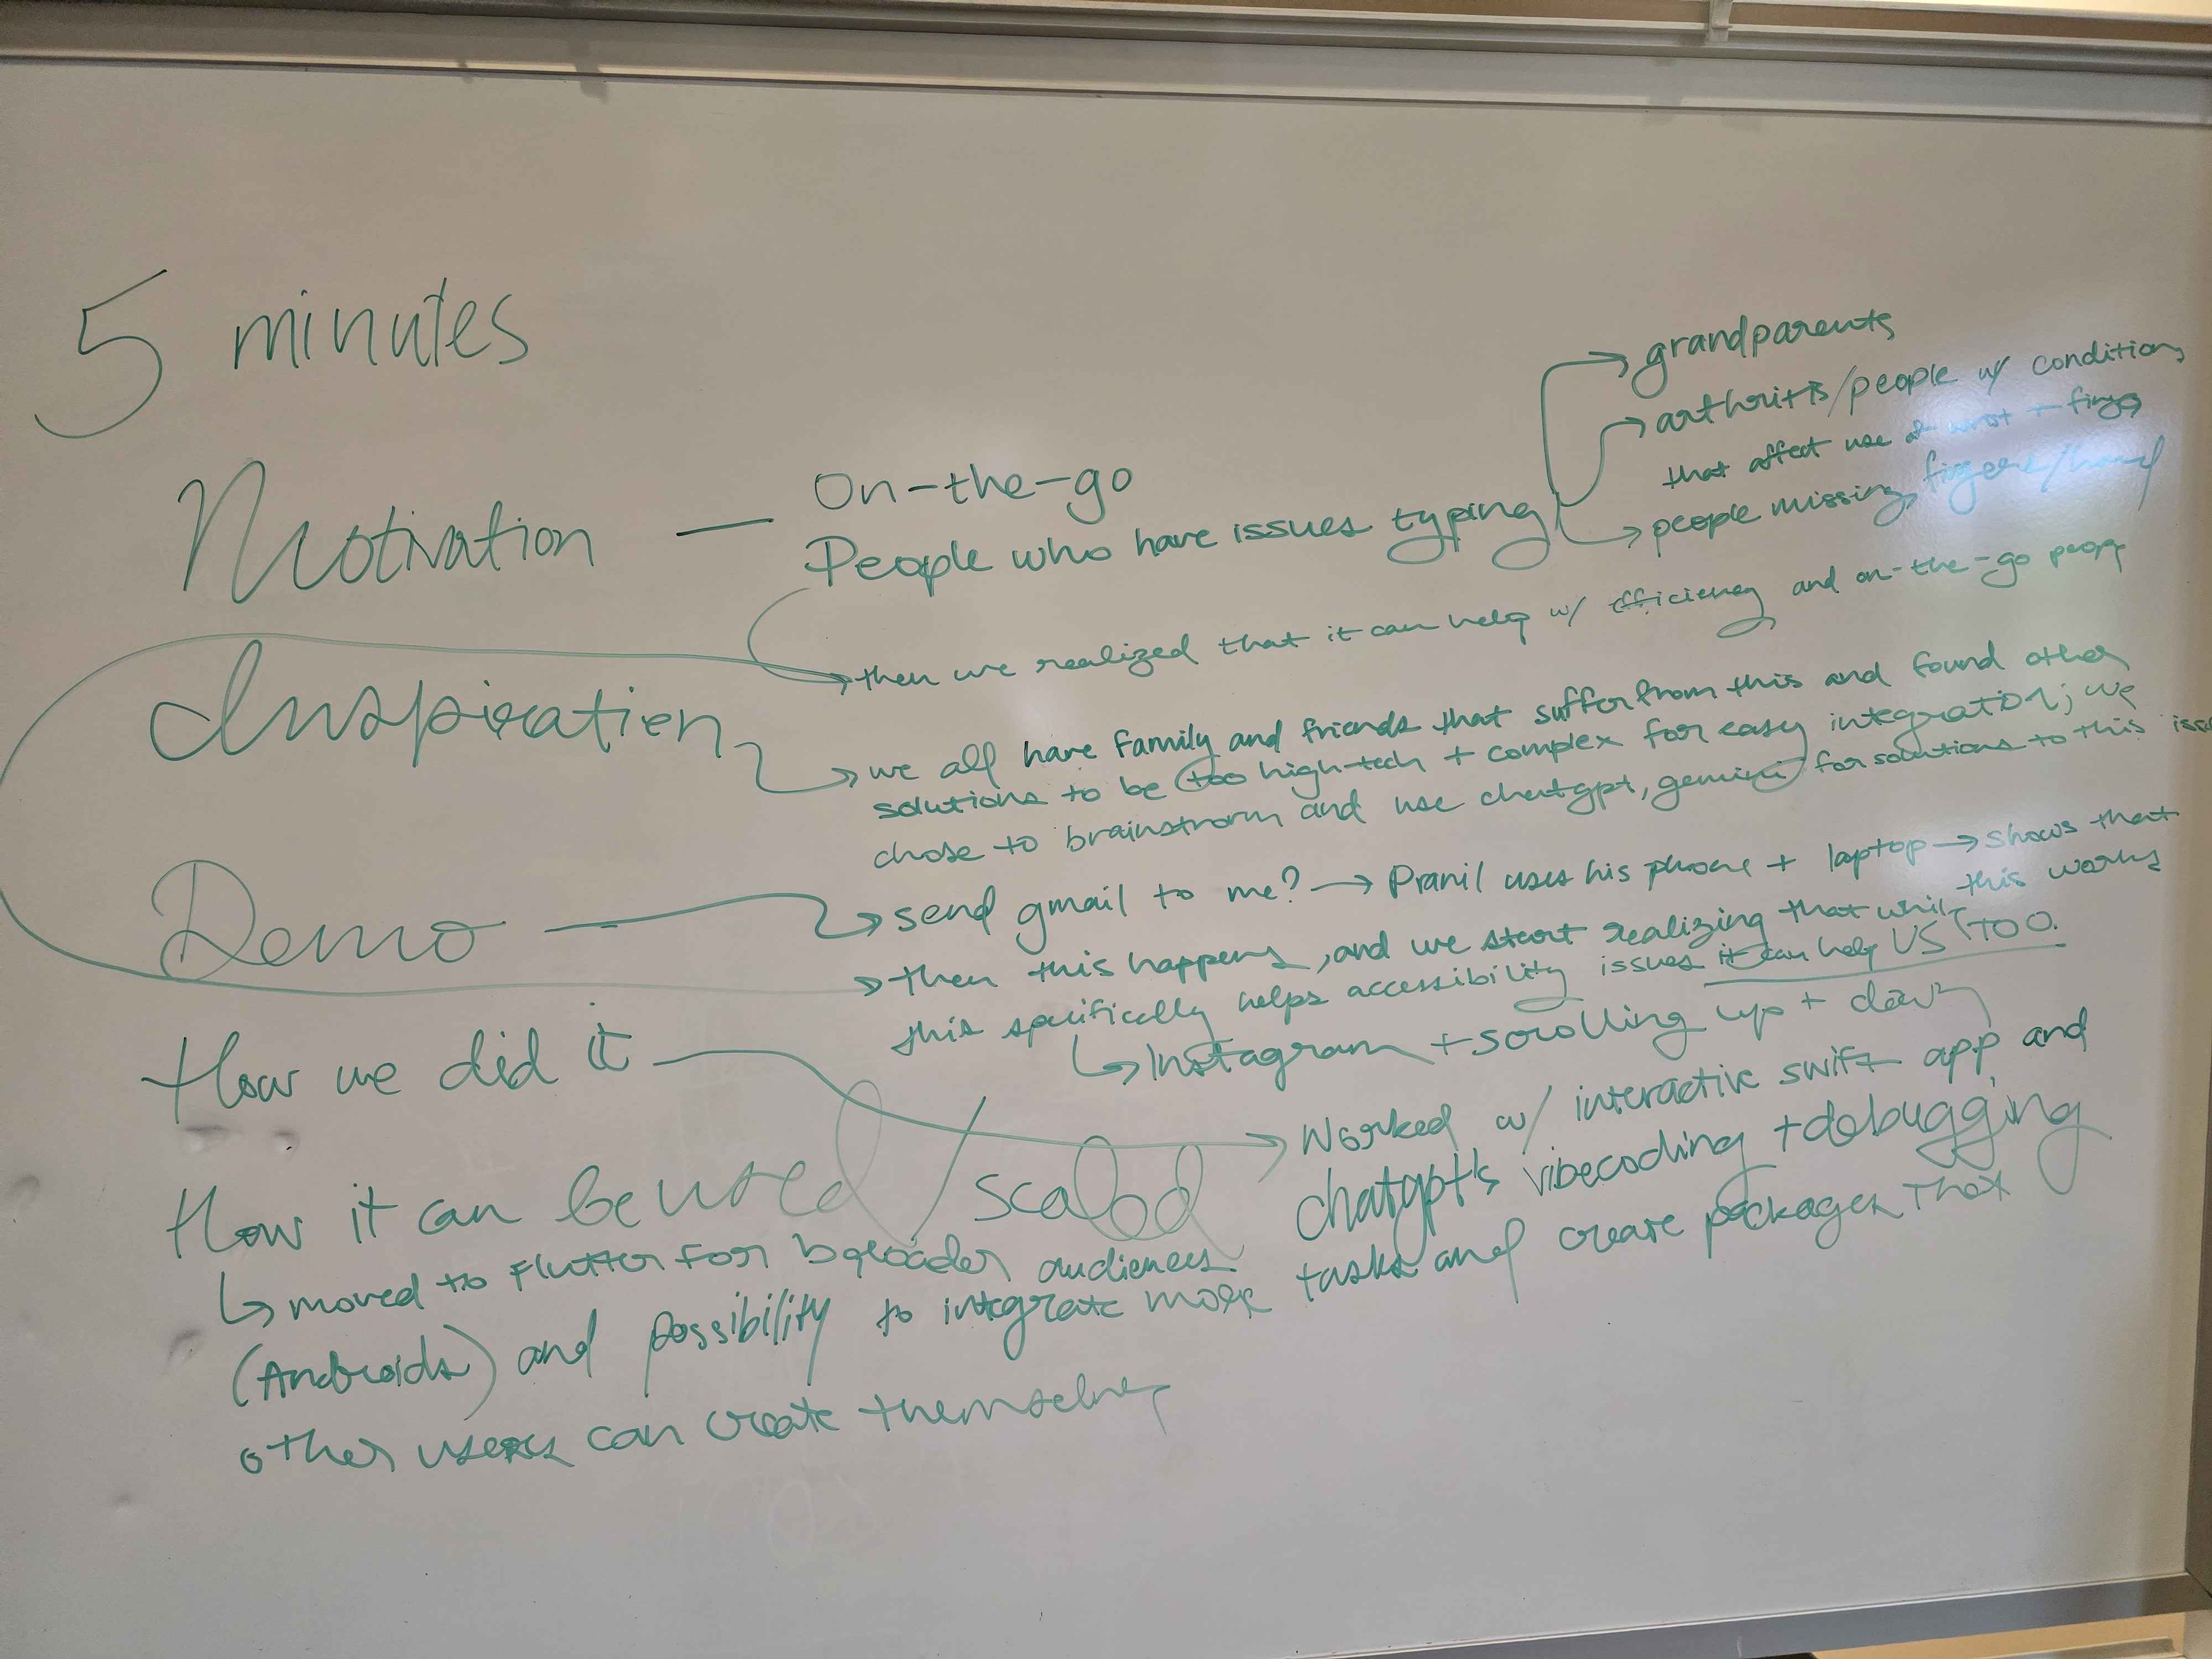 5 minutes
Motivation — On-the-go
People who have issues typing
grandparents
arthritis/people w/ conditions
that affect use of wrist + fings
people missing fingers/hand
then we realized that it can help w/ efficiency and on-the-go people
Inspiration
we all have family and friends that suffer from this and found other
solutions to be too high-tech + complex for easy integration; we
chose to brainstrorm and use chatgpt, gemini for solutions to this
Demo — send gmail to me? → Pranil uses his phone + laptop → shows that
this works
then this happens, and we start realizing that while
this specifically helps accessibility issues it can help US TOO.
Instagram + scrolling up + down
How we did it
Worked w/ interactive swift app and
chatgpt's vibecoding + debugging
How it can be used / scaled
moved to Flutter for broader audiences
(Androids) and possibility to integrate more tasks and create packages that
other users can create themselves